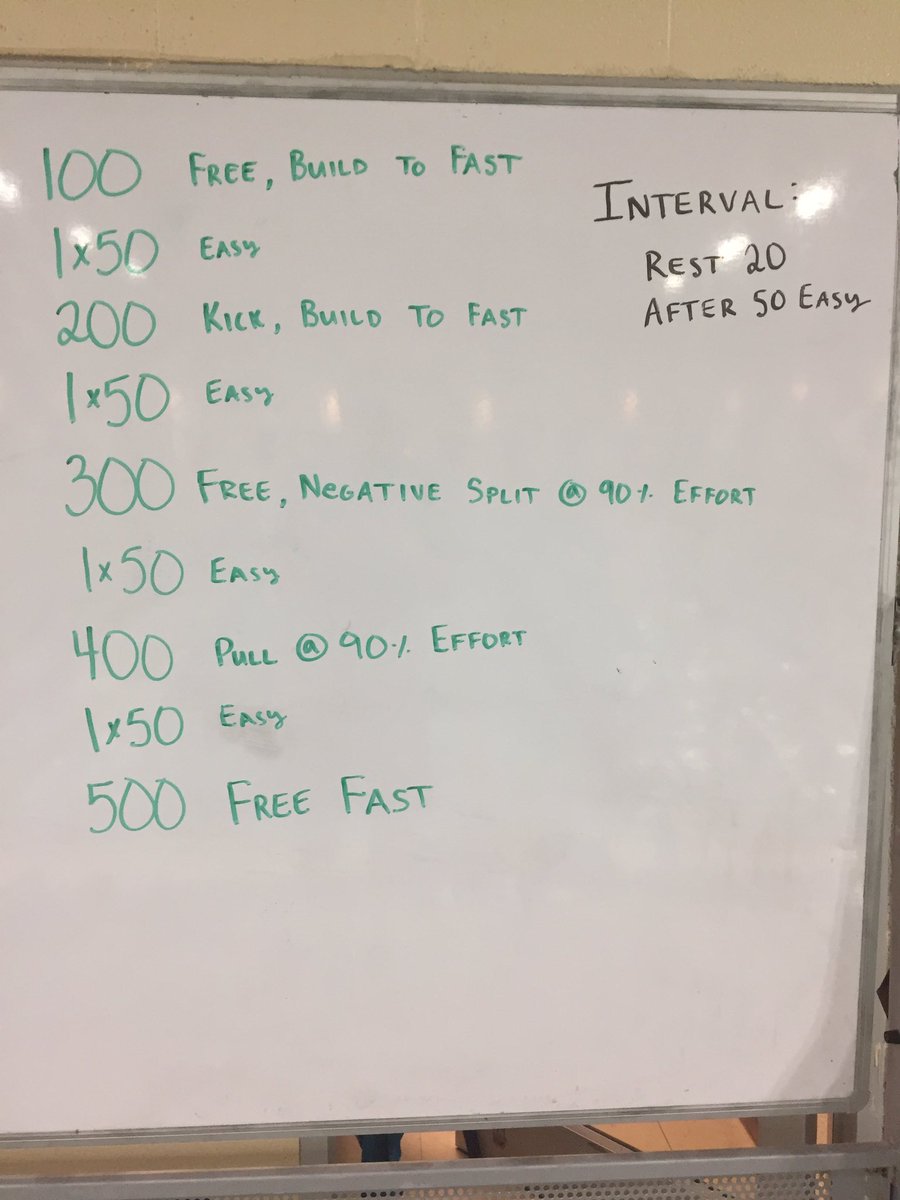 100 FREE, BUILD TO FAST
1x50 EASY
200 KICK, BUILD TO FAST
1x50 EASY
300 FREE, NEGATIVE SPLIT @ 90% EFFORT
1x50 EASY
400 PULL @ 90% EFFORT
1x50 EASY
500 FREE FAST
INTERVAL:
REST 20
AFTER 50 EASY